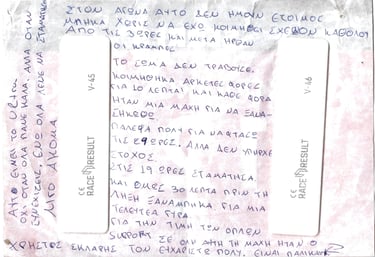 ΣΤΟΝ ΑΓΩΝΑ ΑΥΤΟ ΔΕΝ ΗΜΟΥΝ ΕΤΟΙΜΟΣ
ΜΠΗΚΑ ΧΩΡΙΣ ΝΑ ΕΧΩ ΚΟΙΜΗΘΕΙ ΣΧΕΔΟΝ ΚΑΘΟΛΟΥ
ΑΠΟ ΤΙΣ 3 ΩΡΕΣ ΚΑΙ ΜΕΤΑ ΗΡΘΑΝ
ΟΙ ΚΡΑΜΠΕΣ
ΤΟ ΣΩΜΑ ΔΕΝ ΤΡΑΒΟΥΣΕ
ΚΟΙΜΗΘΗΚΑ ΑΡΚΕΤΕΣ ΦΟΡΕΣ
ΓΙΑ 10 ΛΕΠΤΑ ΚΑΙ ΚΑΘΕ ΦΟΡΑ
ΗΤΑΝ ΜΙΑ ΜΑΧΗ ΓΙΑ ΝΑ ΞΑΝΑ-
ΣΗΚΩΘΩ
ΠΑΛΕΨΑ ΠΟΛΥ ΓΙΑ ΝΑ ΦΤΑΣΩ
ΤΙΣ ΩΡΕΣ ΑΛΛΑ ΔΕΝ ΥΠΗΡΧΕ
ΣΤΟΧΟΣ
ΣΤΙΣ 19 ΩΡΕΣ ΣΤΑΜΑΤΗΣΑ
ΚΑΙ ΟΜΩΣ 30 ΛΕΠΤΑ ΠΡΙΝ ΤΗ
ΛΗΞΗ ΞΑΝΑΜΠΗΚΑ ΓΙΑ ΜΙΑ
ΤΕΛΕΥΤΕΑ ΓΥΡΑ
ΓΙΑ ΤΗΝ ΤΙΜΗ ΤΩΝ ΟΠΛΩΝ
SUPPORT ΣΕ ΟΛΗ ΑΥΤΗ ΤΗ ΜΑΧΗ ΗΤΑΝ Ο
ΧΡΗΣΤΟΣ ΤΟΝ ΕΥΧΑΡΙΣΤΩ ΠΟΛΥ. ΕΙΝΑΙ
ΑΥΤΟ ΕΙΝΑΙ ΤΟ ULTRA
ΟΧΙ ΟΤΑΝ ΟΛΑ ΠΑΝΕ ΚΑΛΑ. ΑΛΛΑ ΟΤΑΝ
ΣΥΝΕΧΙΖΕΙΣ, ΕΝΩ ΟΛΑ ΛΕΝΕ ΝΑ ΣΤΑΜΑΤΗΣΕΙΣ
ΑΚΟΜΑ
V-45
CE
RACE RESULT
V-46
CE
RACE RESULT